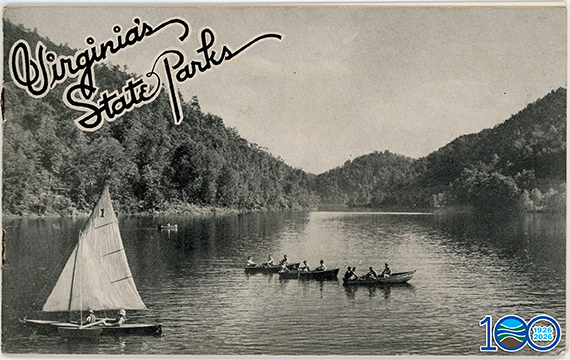 Virginia's
State Parks
1
100
1926
2026